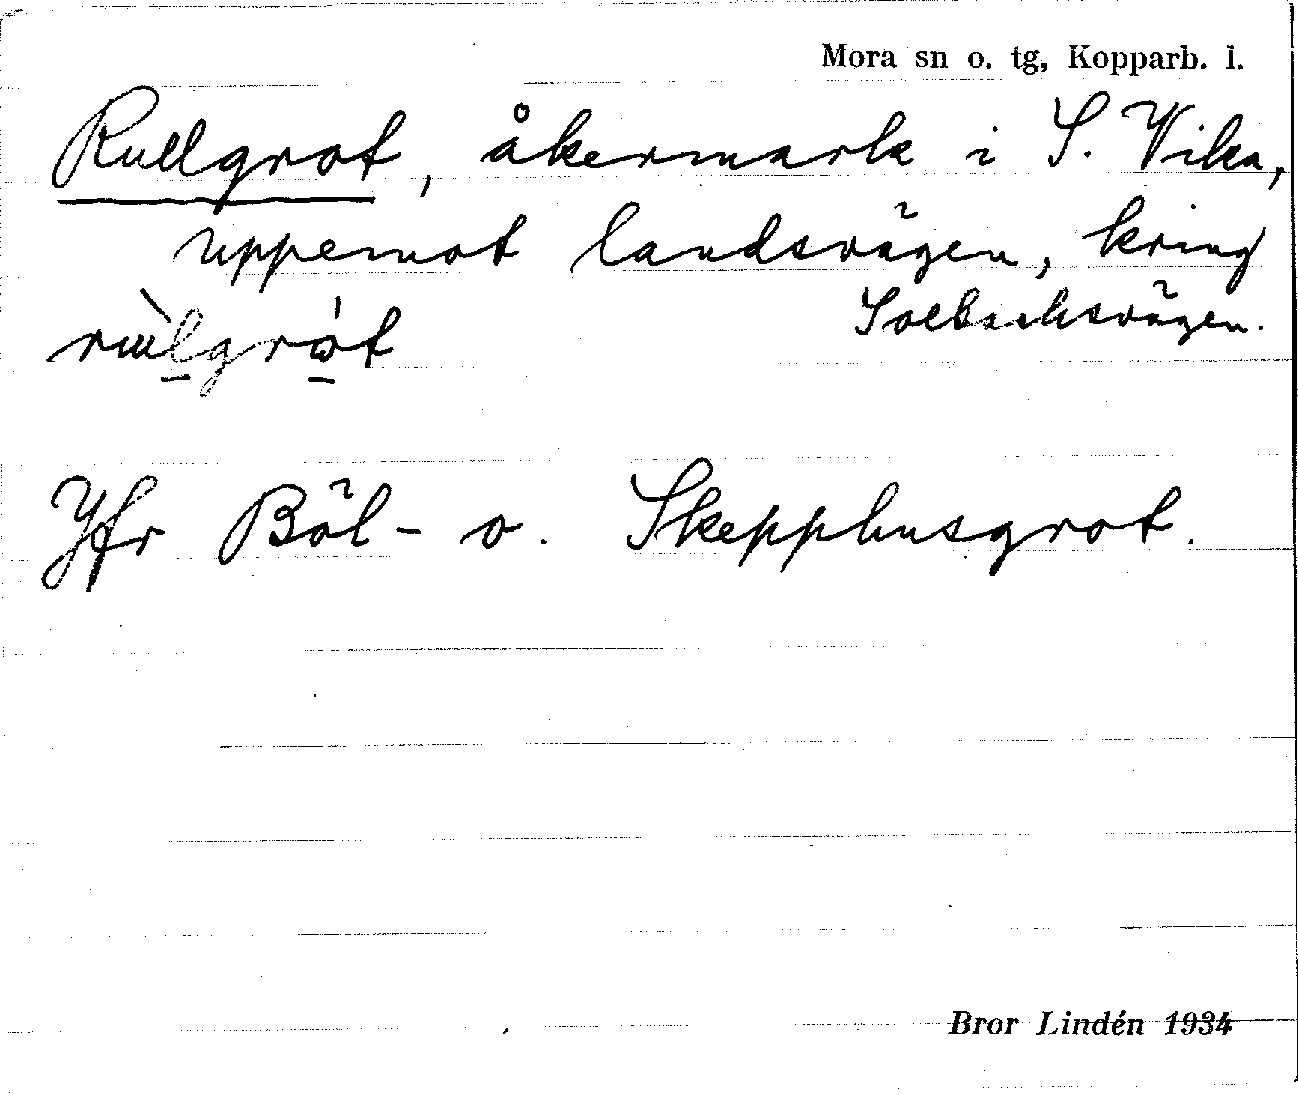 Mora sn o. tg, Kopparb. l.
Rullgrot, åkermark i S. Vika,
uppemot landsvägen, kring
Solbacksvägen.
Jfr Böl- o. Skepphusgrot.
Bror Lindén 1934